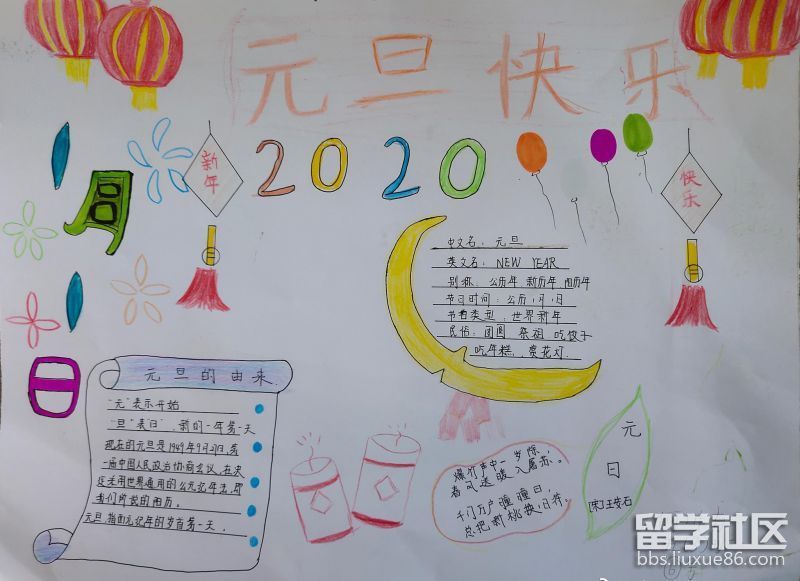 元旦快乐
新年
2020
快乐
1周
1日
中文名：元旦
英文名：NEW YEAR
别称：公历年 新历年 阳历年
节日时间：公历1月1日
节日类型：世界新年
民俗：团圆 祭祖 吃饺子
吃年糕，赏花灯
元旦的由来
“元”表示开始
“旦”表日，新的一年第一天
现在的元旦是1949年9月27日，第
一届中国人民政治协商会议，在决
定采用世界通用的公元纪年法，即
我们所说的阳历。
元旦，指由元纪年的岁首第一天。
爆竹声中一岁除，
春风送暖入屠苏。
千门万户曈曈日，
总把新桃换旧符。
元
日
[宋]王安石
留学社区
bbs.liuxue86.com